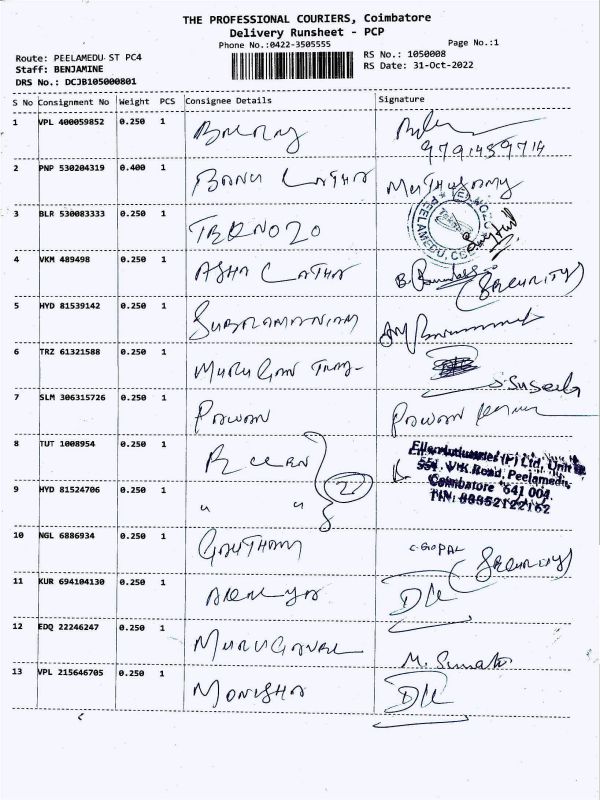 THE PROFESSIONAL COURIERS, Coimbatore
Delivery Runsheet - PCP
Phone No.:0422-3505555
Page No.:1
Route: PEELAMEDU ST PC4
RS No.: 1050008
Staff: BENJAMINE
RS Date: 31-Oct-2022
DRS No.: DCJB105000801
S No Consignment No Weight PCS Consignee Details Signature
1 VPL 400059852 0.250 1
9791459714
2 PNP 530204319 0.400 1 BANU LATHA MUTHUSAMY
3 BLR 530083333 0.250 1
PEELAMEDU
4 VKM 489498 0.250 1 ASHA LATHA
(SECURITY)
5 HYD 81539142 0.250 1 SUBRAMANIAM
6 TRZ 61321588 0.250 1 MURUGAN
S. Suseela
7 SLM 306315726 0.250 1 PAWAN PAWAN
8 TUT 1008954 0.250 1
(P) Ltd, Unit
551, V.K. Road, Peelamedu,
Coimbatore 641 004.
TIN: 33352122162
9 HYD 81524706 0.250 1 " " 2
10 NGL 6886934 0.250 1 GAUTHAM C. GOPAL (SECURITY)
11 KUR 694104130 0.250 1
12 EDQ 22246247 0.250 1 MURUGAVEL
13 VPL 215646705 0.250 1 MONISHA